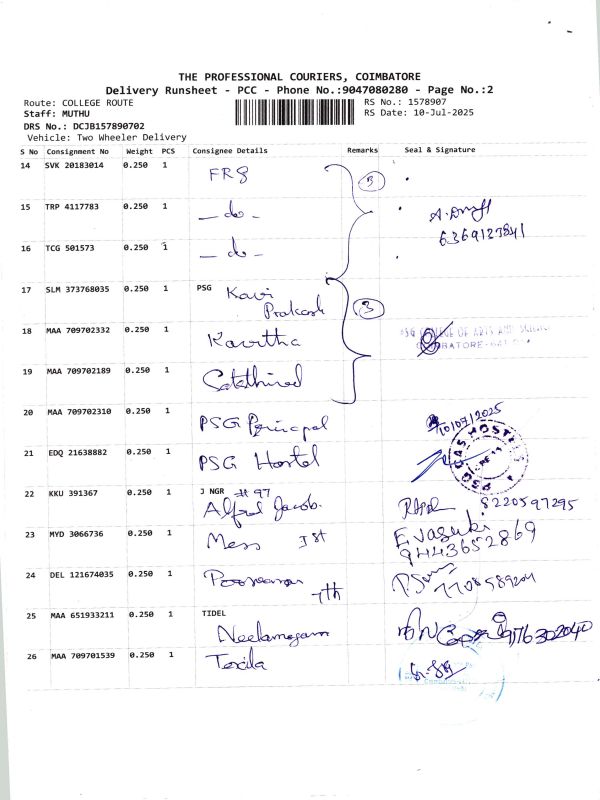 THE PROFESSIONAL COURIERS, COIMBATORE
Delivery Runsheet - PCC - Phone No.:9047080280 - Page No.:2
Route: COLLEGE ROUTE RS No.: 1578907
Staff: MUTHU RS Date: 10-Jul-2025
DRS No.: DCJB157890702
Vehicle: Two Wheeler Delivery
S No Consignment No Weight PCS Consignee Details Remarks Seal & Signature
14 SVK 20183014 0.250 1 FRS 3
15 TRP 4117783 0.250 1 - do -
6369127841
16 TCG 501573 0.250 1 - do -
17 SLM 373768035 0.250 1 PSG Kavi
Prakash 3
18 MAA 709702332 0.250 1 Kavitha PSG COLLEGE OF ARTS AND SCIENCE
COIMBATORE
19 MAA 709702189 0.250 1
20 MAA 709702310 0.250 1 PSG Principal 10/07/2025
21 EDQ 21638882 0.250 1 PSG Hostel PSG CAS HOSTEL
22 KKU 391367 0.250 1 J NGR # 97
Alfred Jacob. 8220597295
23 MYD 3066736 0.250 1 Mess Ist E Vasuki
9443652869
24 DEL 121674035 0.250 1 7th 7708589204
25 MAA 651933211 0.250 1 TIDEL
Neelamegam 9176302040
26 MAA 709701539 0.250 1 Texila